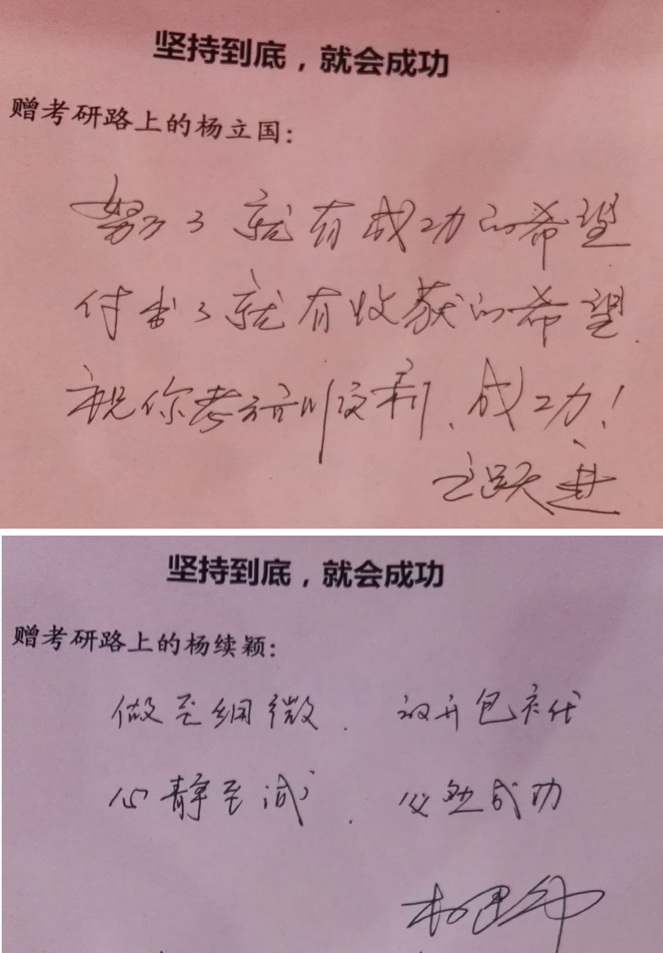 坚持到底，就会成功
赠考研路上的杨立国：
努力了就有成功的希望
付出了就有收获的希望
祝你考研顺利、成功！
王跃进
坚持到底，就会成功
赠考研路上的杨续颖：
做至细微、放开包袱
心静至诚、必然成功